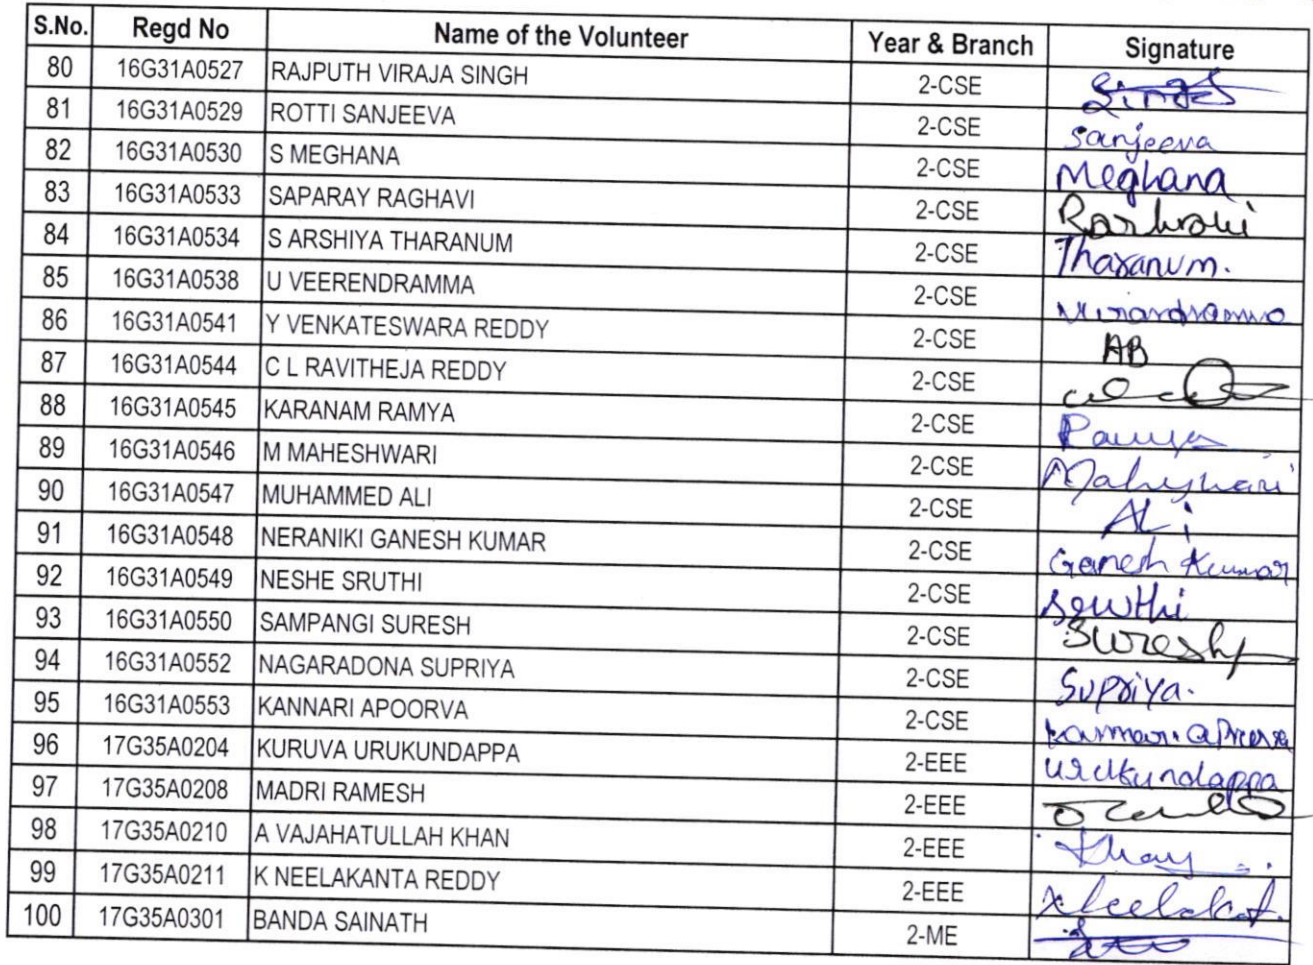 S.No. Regd No Name of the Volunteer Year & Branch Signature
80 16G31A0527 RAJPUTH VIRAJA SINGH 2-CSE
81 16G31A0529 ROTTI SANJEEVA 2-CSE Sanjeeva
82 16G31A0530 S MEGHANA 2-CSE Meghana
83 16G31A0533 SAPARAY RAGHAVI 2-CSE
84 16G31A0534 S ARSHIYA THARANUM 2-CSE Tharanum.
85 16G31A0538 U VEERENDRAMMA 2-CSE
86 16G31A0541 Y VENKATESWARA REDDY 2-CSE AB
87 16G31A0544 C L RAVITHEJA REDDY 2-CSE
88 16G31A0545 KARANAM RAMYA 2-CSE
89 16G31A0546 M MAHESHWARI 2-CSE
90 16G31A0547 MUHAMMED ALI 2-CSE ALi
91 16G31A0548 NERANIKI GANESH KUMAR 2-CSE Ganesh Kumar
92 16G31A0549 NESHE SRUTHI 2-CSE
93 16G31A0550 SAMPANGI SURESH 2-CSE Suresh
94 16G31A0552 NAGARADONA SUPRIYA 2-CSE Supriya.
95 16G31A0553 KANNARI APOORVA 2-CSE
96 17G35A0204 KURUVA URUKUNDAPPA 2-EEE Urukundappa
97 17G35A0208 MADRI RAMESH 2-EEE
98 17G35A0210 A VAJAHATULLAH KHAN 2-EEE
99 17G35A0211 K NEELAKANTA REDDY 2-EEE
100 17G35A0301 BANDA SAINATH 2-ME